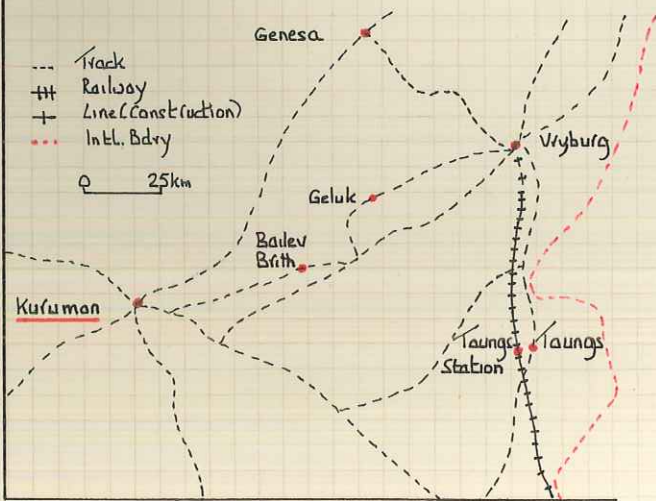 Genesa
Track
Railway
Line (Construction)
Intl. Bdry
0 25km
Vryburg
Geluk
Bailey
Brith
Kuruman
Taungs
Station
Taungs